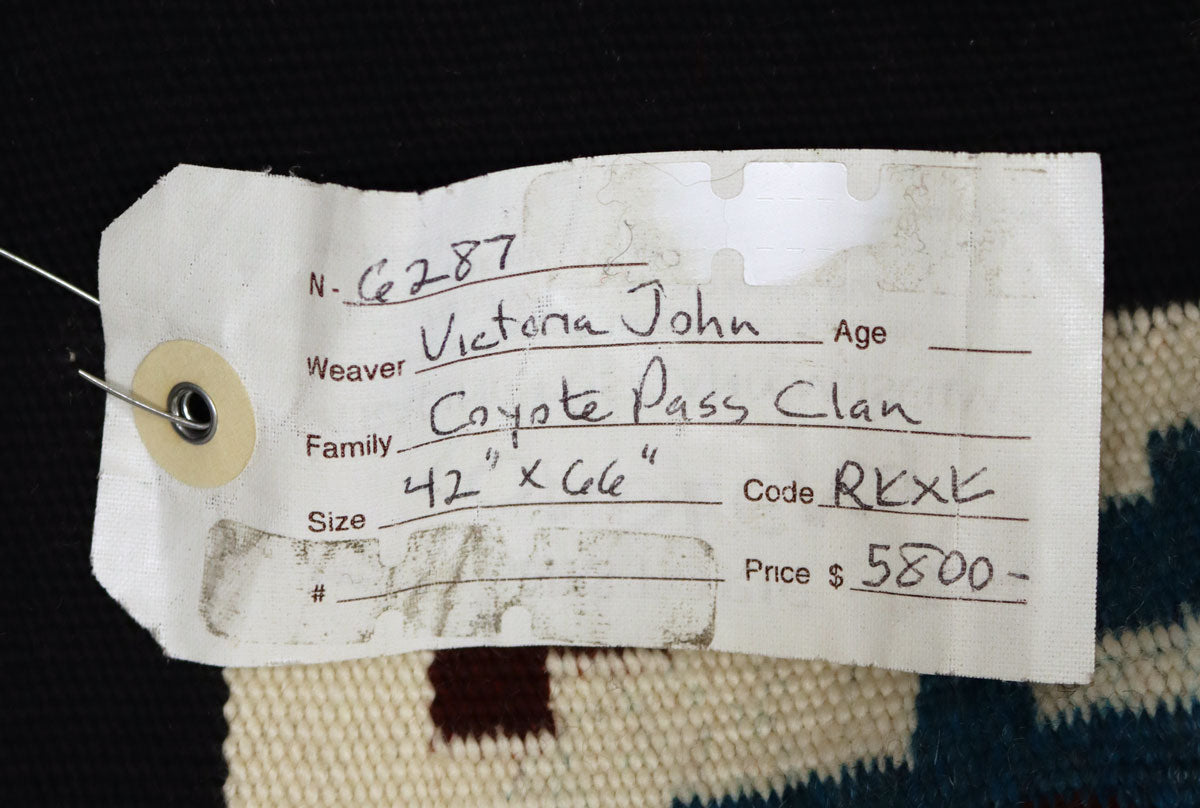 N- 6287
Weaver Victoria John Age
Family Coyote Pass Clan
Size 42" x 66" Code RKXK
# Price $ 5800-